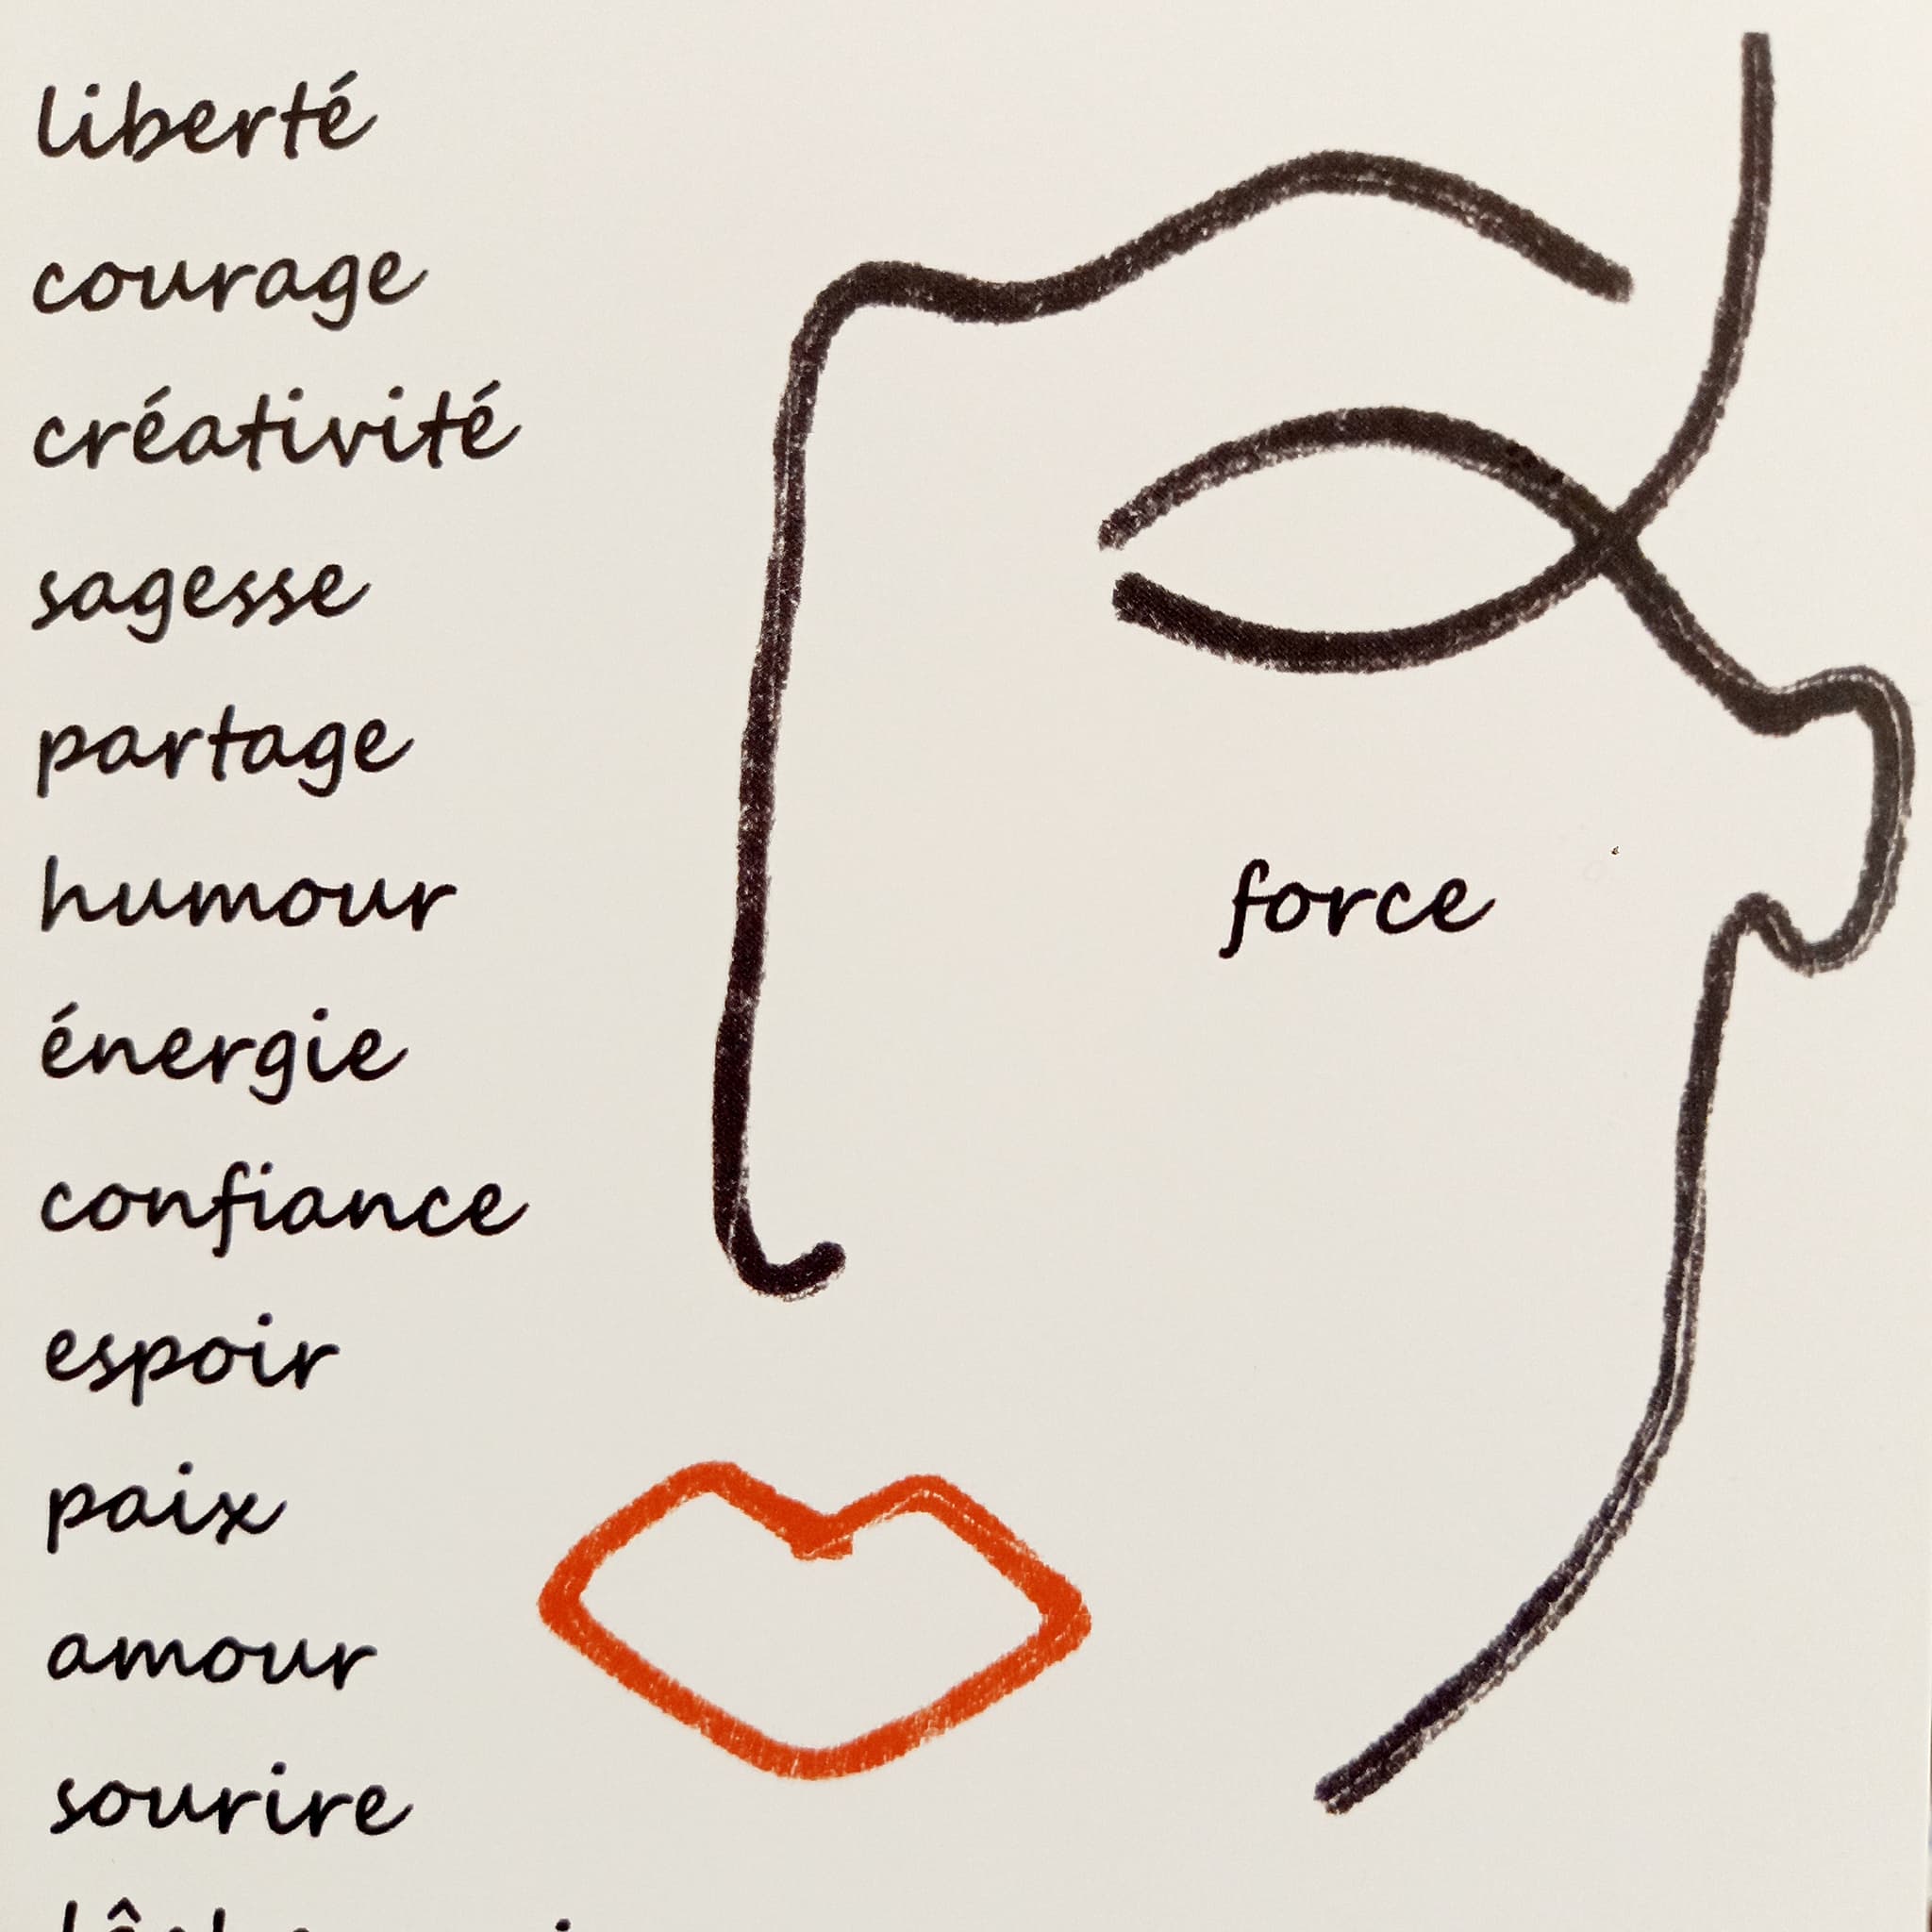 liberté
courage
créativité
sagesse
partage
humour
énergie
confiance
espoir
paix
amour
sourire
force